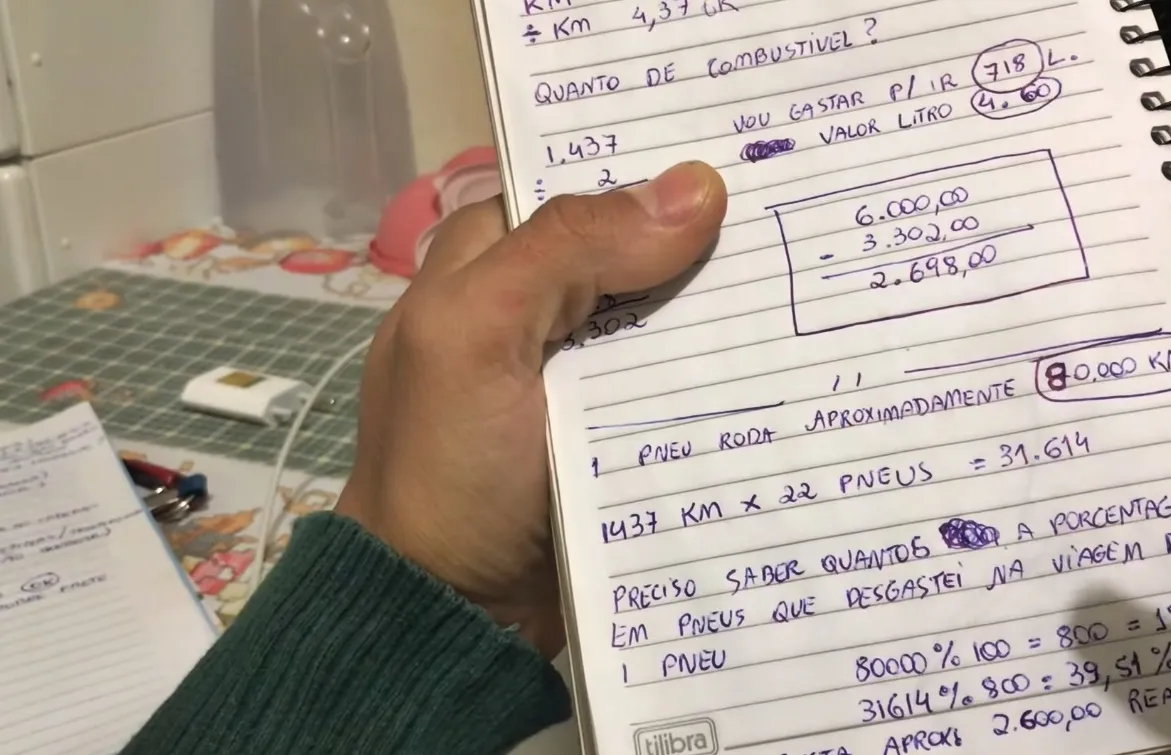 KM
÷ KM 4,37
QUANTO DE COMBUSTÍVEL?
VOU GASTAR P/ IR 718 L.
VALOR LITRO 4.60
1.437
÷ 2
6.000,00
- 3.302,00
2.698,00
3.302
1 PNEU RODA APROXIMADAMENTE 80.000 KM
1437 KM x 22 PNEUS = 31.614
PRECISO SABER QUANTOS A PORCENTAG
EM PNEUS QUE DESGASTEI NA VIAGEM
1 PNEU 80000 % 100 = 800 = 1
31614 % 800 = 39,51 %
APROX 2.600,00 REA
tilibra
OK
FRETE